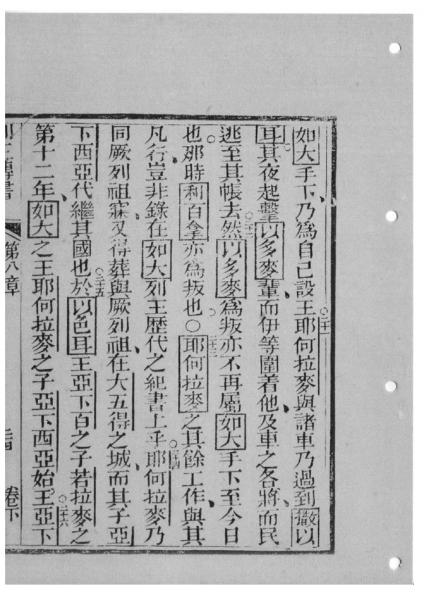 如大手下乃爲自己設王耶何拉麥與諸車乃過到撒以
耳其夜起擊以多麥輩而伊等圍着他及車之各將而民
逃至其帳去然以多麥爲叛亦不再屬如大手下至今日
也那時利百拿亦爲叛也○耶何拉麥之其餘工作與其
凡行豈非錄在如大列王歷代之紀書上乎耶何拉麥乃
同厥列祖寐又得葬與厥列祖在大五得之城而其子亞
下西亞代繼其國也於以色耳王亞下百之子若拉麥之
第十二年如大之王耶何拉麥之子亞下西亞始王亞下
第八章
卷下